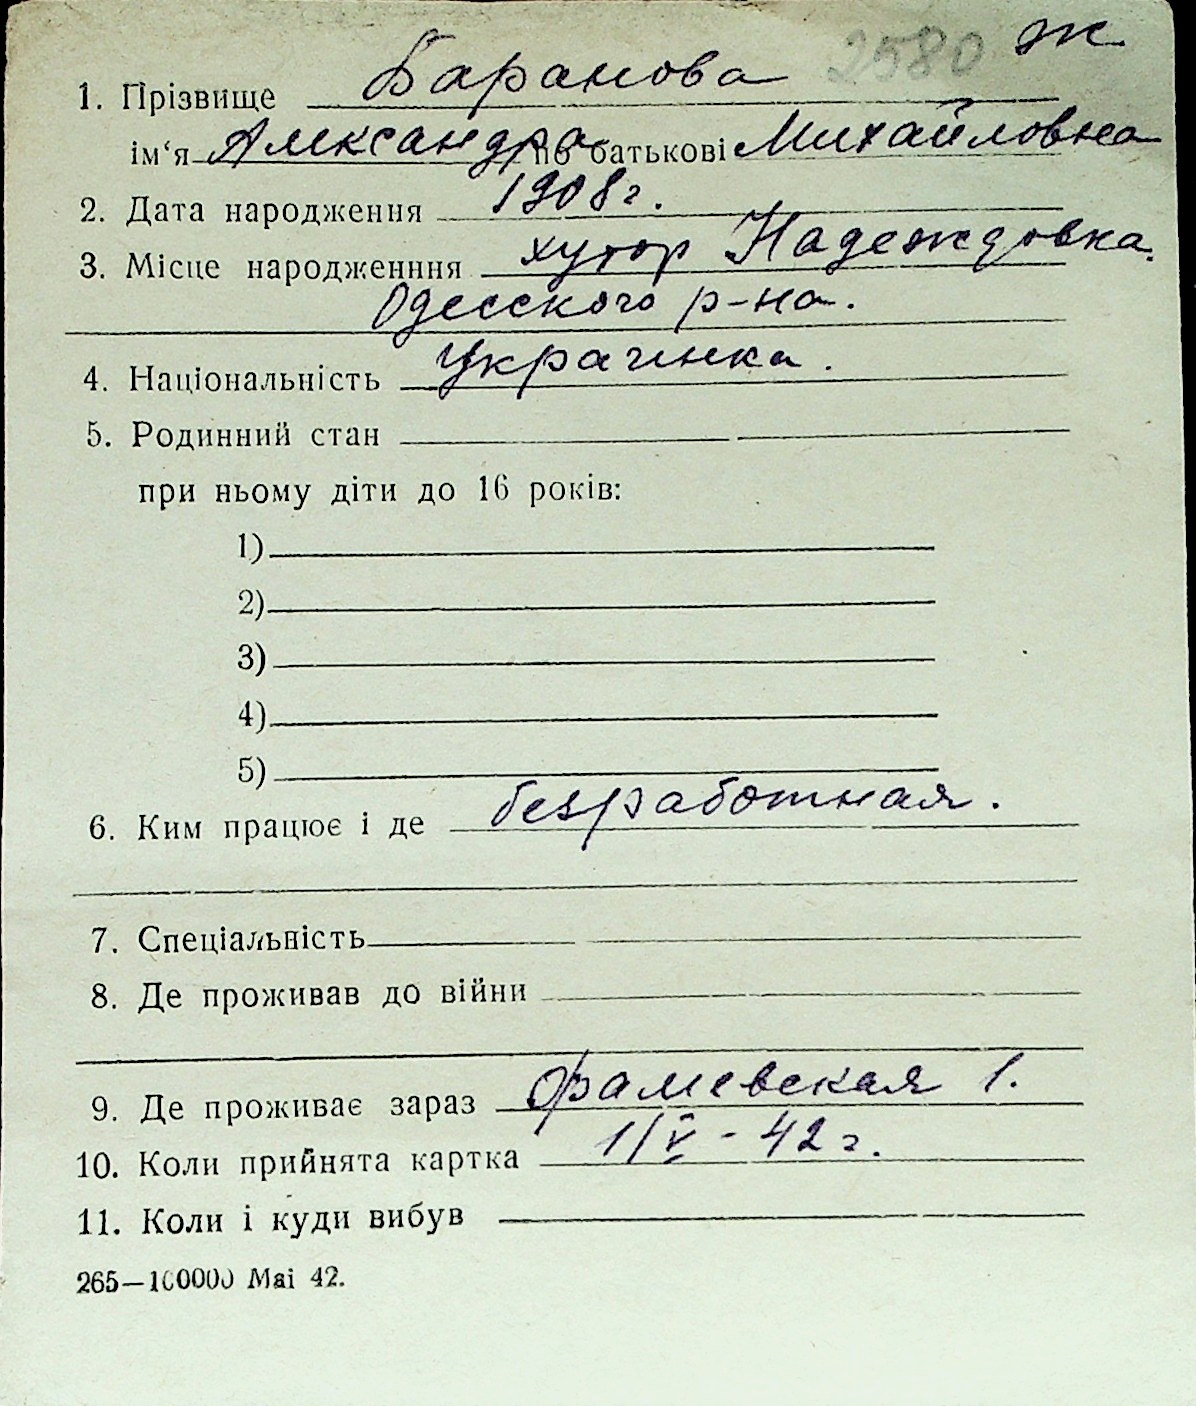 2580 ж
1. Прізвище Баранова
ім‘я Александра по батькові Михайловна
2. Дата народження 1908 г.
3. Місце народженння хутор Надеждовка.
Одесского р-на.
4. Національність Украинка.
5. Родинний стан
при ньому діти до 16 років:
1)
2)
3)
4)
5)
6. Ким працює і де безработная.
7. Спеціальність
8. Де проживав до війни
9. Де проживає зараз 1.
10. Коли прийнята картка 1/V - 42 г.
11. Коли і куди вибув
265—100000 Mai 42.